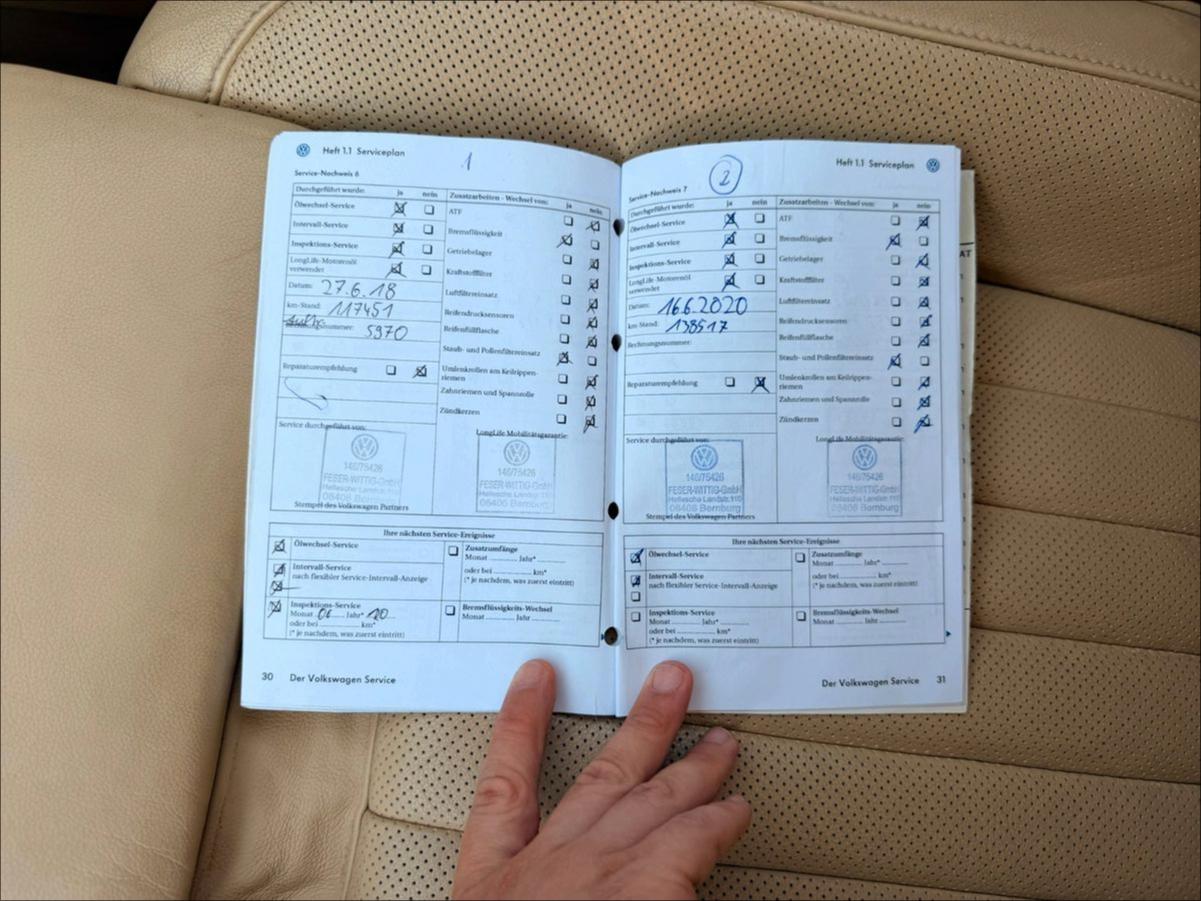 Heft 1.1 Serviceplan
1
Service-Nachweis 6
Durchgeführt wurde: ja nein
Ölwechsel-Service
Intervall-Service
Inspektions-Service
LongLife-Motorenöl
verwendet
Datum: 27.6.18
km-Stand: 117451
5970
Reparaturempfehlung
Zusatzarbeiten - Wechsel von: ja nein
ATF
Bremsflüssigkeit
Getriebelager
Kraftstofffilter
Luftfiltereinsatz
Reifendrucksensoren
Reifenfüllflasche
Staub- und Pollenfiltereinsatz
Umlenkrollen am Keilrippen-
riemen
Zahnriemen und Spannrolle
Zündkerzen
Service durchgeführt von:
146/75426
FESER-WITTIG-GmbH
Hallesche Landstr. 110
06406 Bernburg
Stempel des Volkswagen Partners
LongLife Mobilitätsgarantie:
146/75426
FESER-WITTIG-GmbH
Hallesche Landstr. 110
06406 Bernburg
Ihre nächsten Service-Ereignisse
Ölwechsel-Service
Intervall-Service
nach flexibler Service-Intervall-Anzeige
Inspektions-Service
Monat 06 Jahr* 20
oder bei .......... km*
(* je nachdem, was zuerst eintritt)
Zusatzumfänge
Monat .......... Jahr* ..........
oder bei .......... km*
(* je nachdem, was zuerst eintritt)
Bremsflüssigkeits-Wechsel
Monat .......... Jahr ..........
30 Der Volkswagen Service
Heft 1.1 Serviceplan
2
Service-Nachweis 7
Durchgeführt wurde: ja nein
Ölwechsel-Service
Intervall-Service
Inspektions-Service
LongLife-Motorenöl
verwendet
Datum: 16.6.2020
km-Stand: 138517
Rechnungsnummer:
Reparaturempfehlung
Zusatzarbeiten - Wechsel von: ja nein
ATF
Bremsflüssigkeit
Getriebelager
Kraftstofffilter
Luftfiltereinsatz
Reifendrucksensoren
Reifenfüllflasche
Staub- und Pollenfiltereinsatz
Umlenkrollen am Keilrippen-
riemen
Zahnriemen und Spannrolle
Zündkerzen
Service durchgeführt von:
146/75426
FESER-WITTIG-GmbH
Hallesche Landstr. 110
06406 Bernburg
Stempel des Volkswagen Partners
LongLife Mobilitätsgarantie:
146/75426
FESER-WITTIG-GmbH
Hallesche Landstr. 110
06406 Bernburg
Ihre nächsten Service-Ereignisse
Ölwechsel-Service
Intervall-Service
nach flexibler Service-Intervall-Anzeige
Inspektions-Service
Monat .......... Jahr* ..........
oder bei .......... km*
(* je nachdem, was zuerst eintritt)
Zusatzumfänge
Monat .......... Jahr* ..........
oder bei .......... km*
(* je nachdem, was zuerst eintritt)
Bremsflüssigkeits-Wechsel
Monat .......... Jahr ..........
Der Volkswagen Service 31